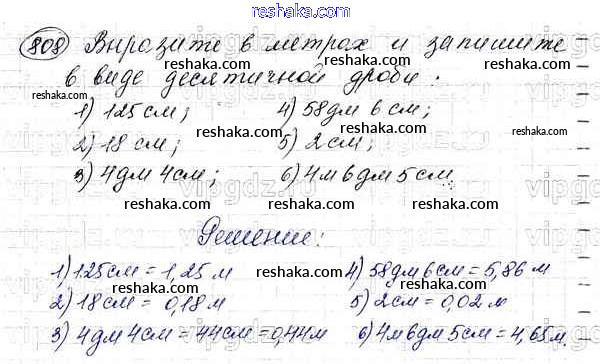 reshaka.com
808 Выразите в метрах и запишите
в виде десятичной дроби:
1) 125 см; 4) 58 дм 6 см;
2) 18 см; 5) 2 см;
3) 4 дм 4 см; 6) 4 м 6 дм 5 см.
Решение:
1) 125 см = 1,25 м 4) 58 дм 6 см = 5,86 м
2) 18 см = 0,18 м 5) 2 см = 0,02 м
3) 4 дм 4 см = 44 см = 0,44 м 6) 4 м 6 дм 5 см = 4,65 м.
reshaka.com